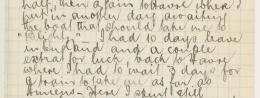 hall, then again to Havre where I
put in another day awaiting
the boat that should take me to
"Blighty". I had 10 days leave
in England and a couple
extra for luck, back to Havre
where I had to wait 3 days for
a train to take us as far as
Here I spent still